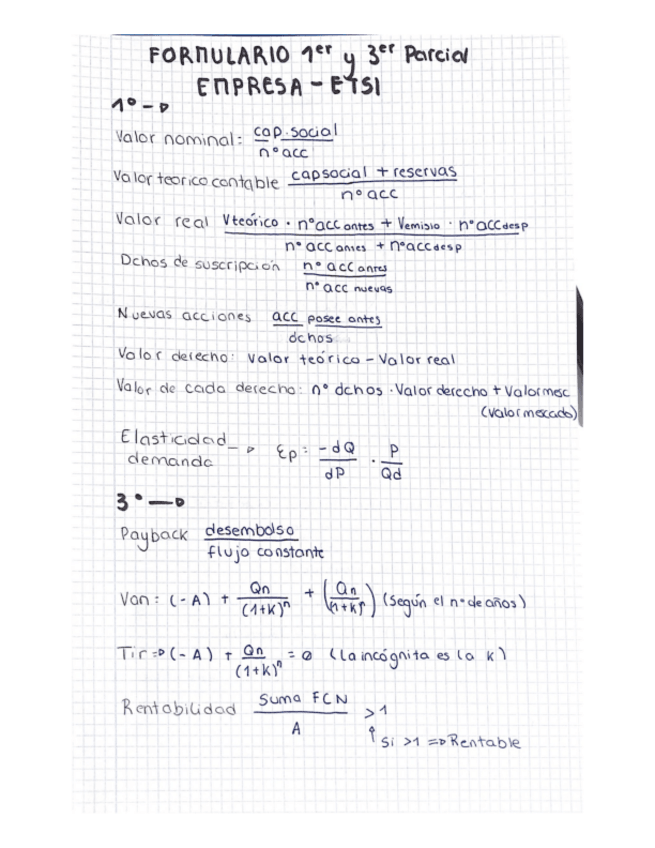 FORMULARIO 1er y 3er Parcial
EMPRESA - ETSI
1º →
Valor nominal: cap. social / nº acc
Valor teorico contable cap social + reservas / nº acc
Valor real Vteórico · nº acc antes + Vemisio · nº acc desp / nº acc antes + nº acc desp
Dchos de suscripción nº acc antes / nº acc nuevas
Nuevas acciones acc posee antes / dchos
Valor derecho: Valor teórico - Valor real
Valor de cada derecho: nº dchos · Valor derecho + Valor mesc
(Valor mercado)
Elasticidad demanda → Ep = -dQ/dP · P/Qd
3º →
Payback desembolso / flujo constante
Van: (-A) + Qn/(1+K)^n + (Qn/(1+K)^n) (Según el nº de años)
Tir ⇒ (-A) + Qn/(1+K)^n = 0 (La incógnita es la K)
Rentabilidad Suma FCN / A > 1
↑ Si >1 ⇒ Rentable